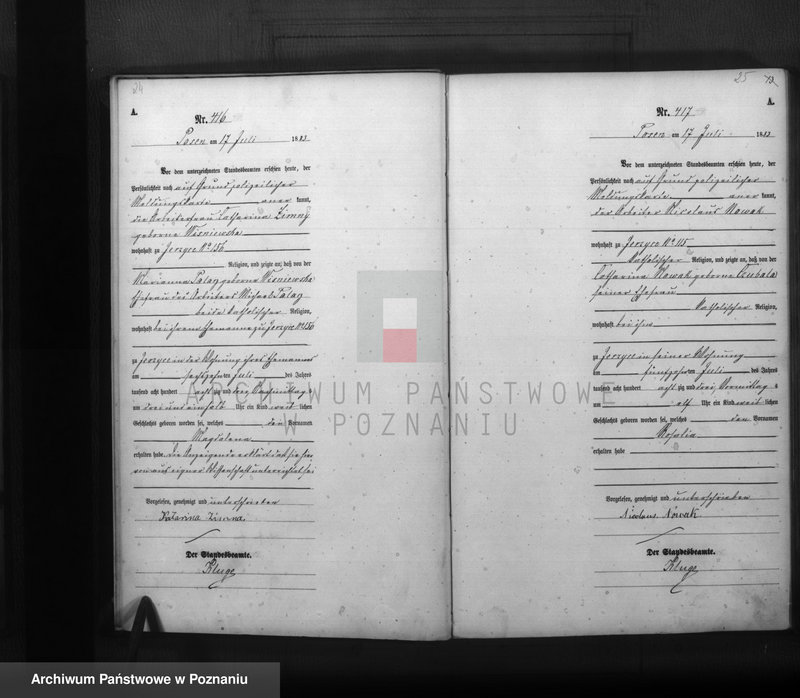 24
A.
Nr. 416
Posen am 17 Juli 1883
Vor dem unterzeichneten Standesbeamten erschien heute, der
Persönlichkeit nach auf Grund polizeilicher
Meldungskarte aner kannt,
die Arbeiterfrau Catharina Zimny
geborne Wisniewska
wohnhaft zu Jerzyce No 156
Religion, und zeigte an, daß von der
Marianna Palacz geborne Wisniewska
Ehefrau des Arbeiters Michael Palacz
beide katholischer Religion,
wohnhaft bei ihrem Ehemanne zu Jerzyce No 156
zu Jerzyce in der Wohnung ihres Ehemannes
am sechzehnten Juli des Jahres
tausend acht hundert acht zig und drei Nachmittag s
um drei und einhalb Uhr ein Kind weib lichen
Geschlechts geboren worden sei, welches den Vornamen
Magdalena
erhalten habe. Die Anzeigende erklärt daß sie hier
von aus eigner Wissenschaft unterrichtet sei
Vorgelesen, genehmigt und unterschrieben
Katarina Zimna
Der Standesbeamte.
Kluge
25
A.
Nr. 417
Posen am 17 Juli 1883
Vor dem unterzeichneten Standesbeamten erschien heute, der
Persönlichkeit nach auf Grund polizeilicher
Meldungskarte aner kannt,
der Arbeiter Nicolaus Nowak
wohnhaft zu Jerzyce No 115
katholischer Religion, und zeigte an, daß von der
Catharina Nowak geborne
seiner Ehefrau
katholischer Religion,
wohnhaft bei ihm
zu Jerzyce in seiner Wohnung
am fünfzehnten Juli des Jahres
tausend acht hundert acht zig und drei Vormittag s
um elf Uhr ein Kind weib lichen
Geschlechts geboren worden sei, welches den Vornamen
Rosalia
erhalten habe
Vorgelesen, genehmigt und unterschrieben
Nicolaus Nowak
Der Standesbeamte.
Kluge
ARCHIWUM PAŃSTWOWE
W POZNANIU
Archiwum Państwowe w Poznaniu